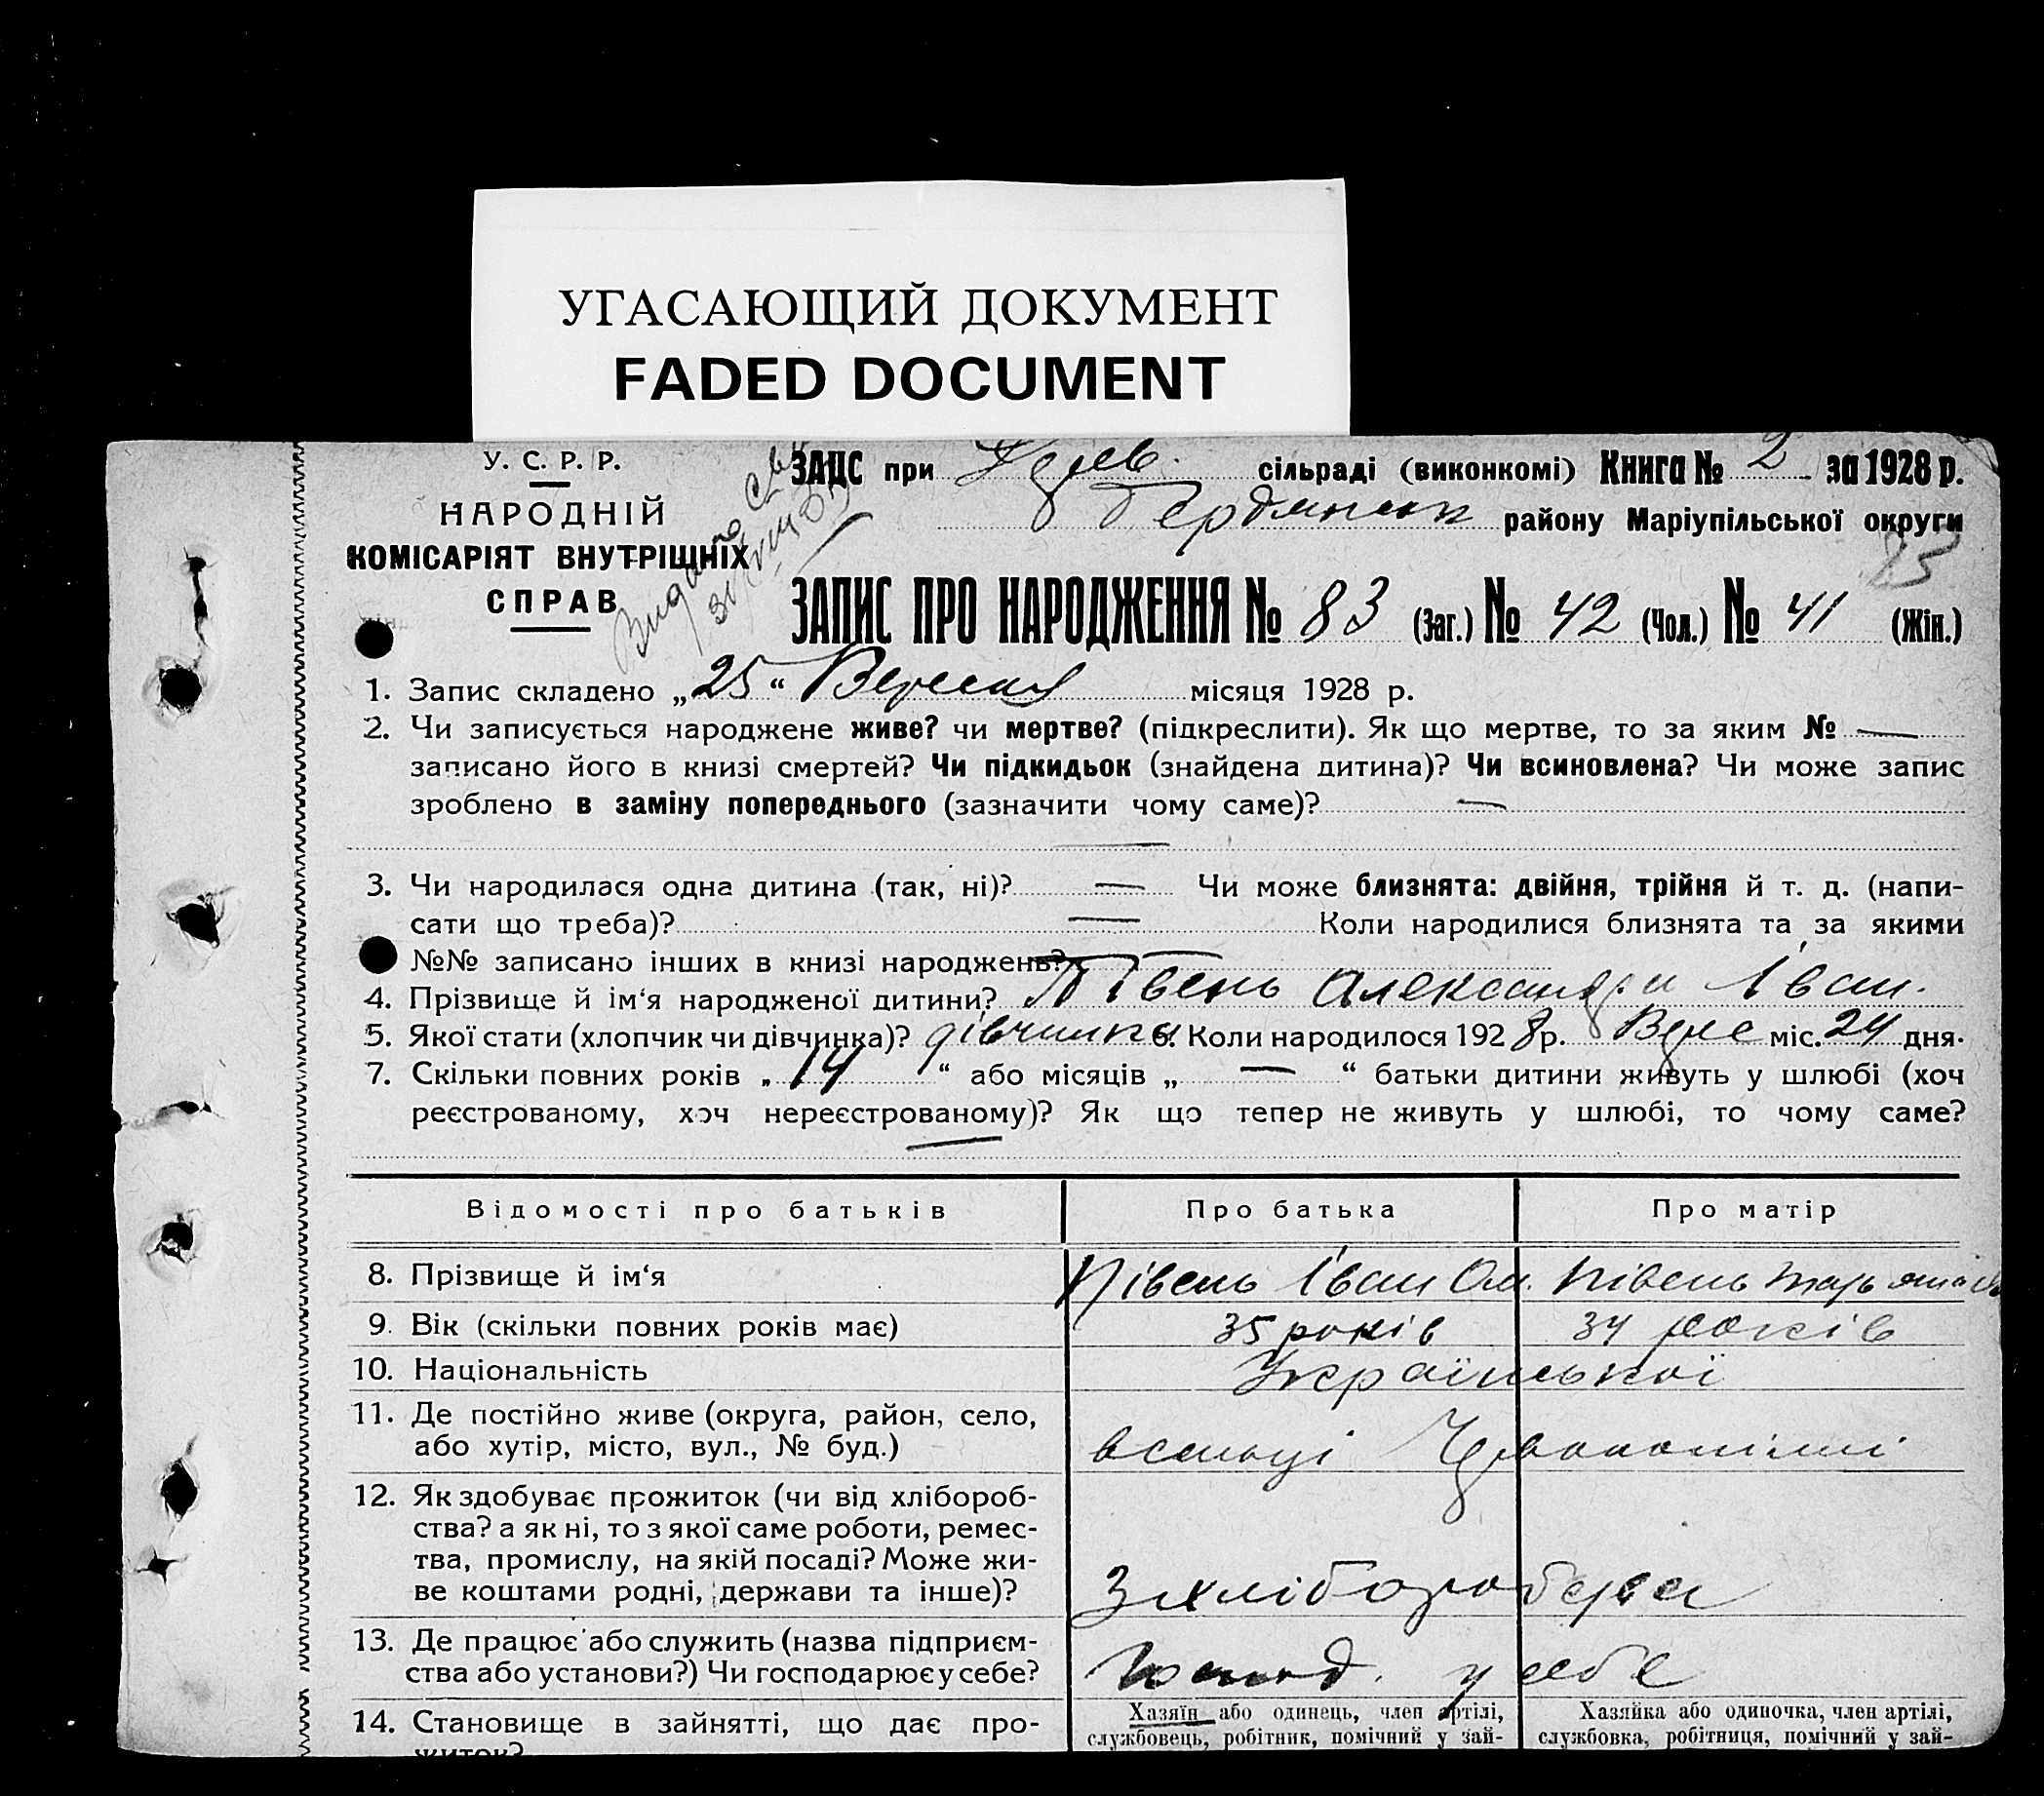 УГАСАЮЩИЙ ДОКУМЕНТ
FADED DOCUMENT
У. С. Р. Р.
НАРОДНІЙ
КОМІСАРІЯТ ВНУТРІШНІХ
СПРАВ
Видано
ЗАЦС при сільраді (виконкомі) Книга № 2 за 1928 р.
Бердянськ району Маріупільської округи
ЗАПИС ПРО НАРОДЖЕННЯ № 83 (Заг.) № 42 (Чол.) № 41 (Жін.)
1. Запис складено „25“ Вересня місяця 1928 р.
2. Чи записується народжене живе? чи мертве? (підкреслити). Як що мертве, то за яким № —
записано його в книзі смертей? Чи підкидьок (знайдена дитина)? Чи всиновлена? Чи може запис
зроблено в заміну попереднього (зазначити чому саме)? —
3. Чи народилася одна дитина (так, ні)? — Чи може близнята: двійня, трійня й т. д. (напи-
сати що треба)? — Коли народилися близнята та за якими
№№ записано інших в книзі народжень?
4. Прізвище й ім‘я народженої дитини? Півень Александра Іван.
5. Якої стати (хлопчик чи дівчинка)? дівчинка 6. Коли народилося 1928 р. Вере міс. 24 дня.
7. Скільки повних років „14“ або місяців „—“ батьки дитини живуть у шлюбі (хоч
реєстрованому, хоч нереєстрованому)? Як що тепер не живуть у шлюбі, то чому саме?
—
Відомості про батьків Про батька Про матір
8. Прізвище й ім‘я Півень Іван Ол. Півень
9. Вік (скільки повних років має) 35 років 34 років
10. Національність Української
11. Де постійно живе (округа, район, село,
або хутір, місто, вул., № буд.)
12. Як здобуває прожиток (чи від хлібороб-
ства? а як ні, то з якої саме роботи, ремес-
тва, промислу, на якій посаді? Може жи-
ве коштами родні, держави та інше)? З хлібороберва
13. Де працює або служить (назва підприєм-
ства або установи?) Чи господарює у себе? у себе
14. Становище в зайнятті, що дає про-
житок?
Хазяїн або одинець, член артілі,
службовець, робітник, помічний у зай-
Хазяйка або одиночка, член артілі,
службовка, робітниця, помічний у зай-